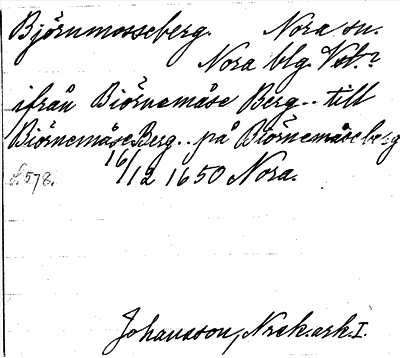 Björnmosseberg. Nora sn.
Nora blg. Vstm.?
ifrån Biörnemåse Berg.. till
BiörnemåseBerg.. på Biörnemåseberg
16/12 1650 Nora.
s. 578.
Johansson, Nrak.ark. I.